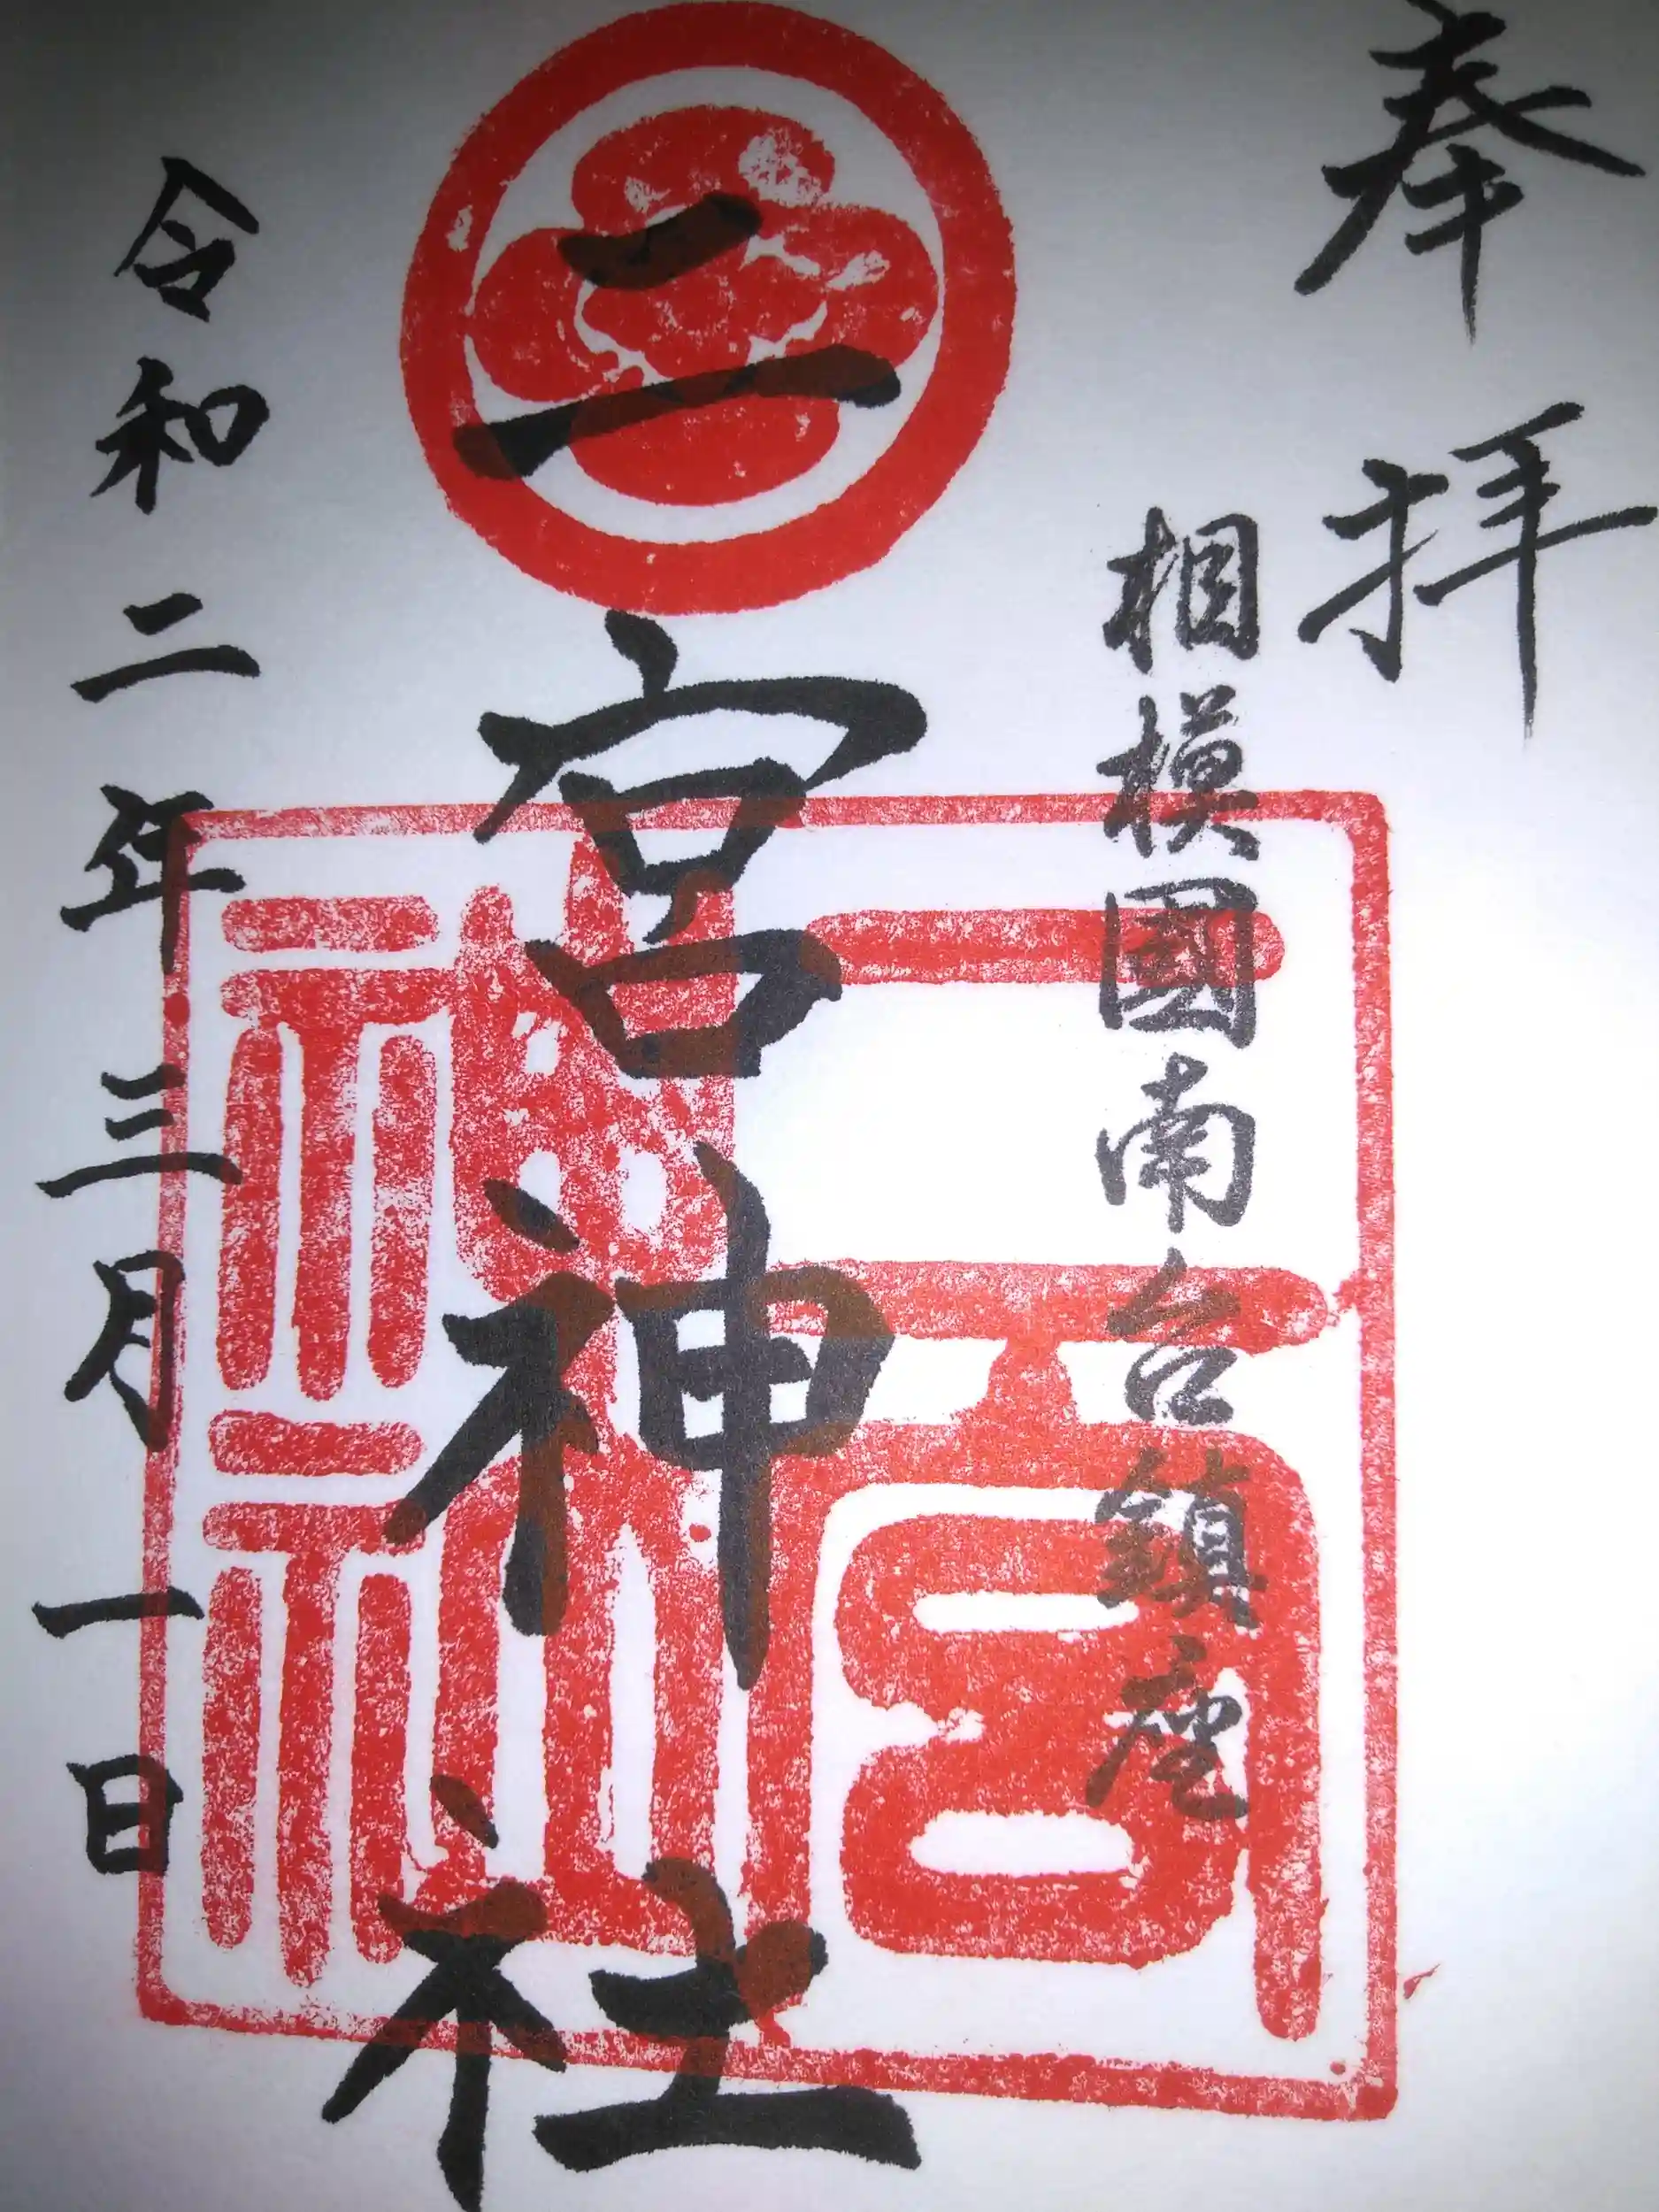 奉拝
相模國南台鎮座
二宮神社
二宮神社
令和二年三月一日